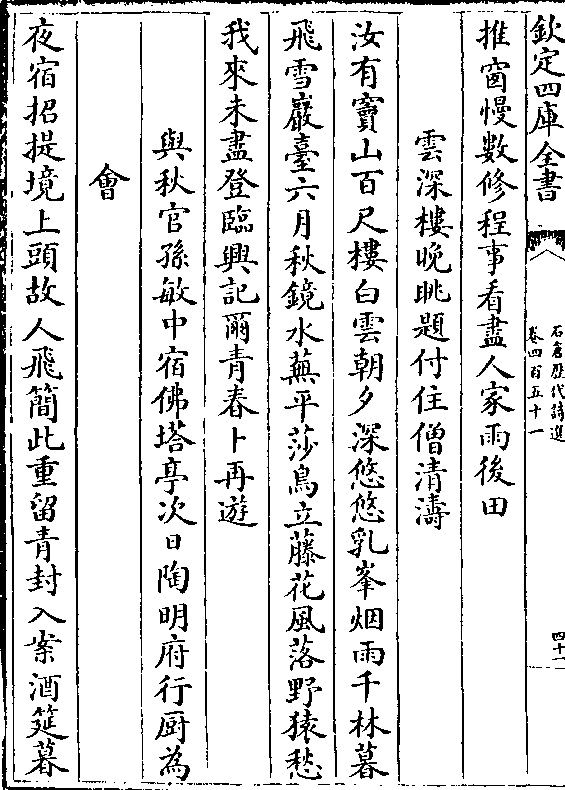 欽定四庫全書
石倉歷代詩選
卷四百五十一
四十一
推窗慢數修程事看盡人家雨後田
雲深樓晚眺題付住僧清濤
汝有寶山百尺樓白雲朝夕深悠悠乳峯烟雨千林暮
飛雪巖臺六月秋鏡水蕪平莎鳥立藤花風落野猿愁
我來未盡登臨興記爾青春卜再遊
與秋官孫敏中宿佛塔亭次日陶明府行厨為
會
夜宿招提境上頭故人飛簡此重留青封入案酒筵暮